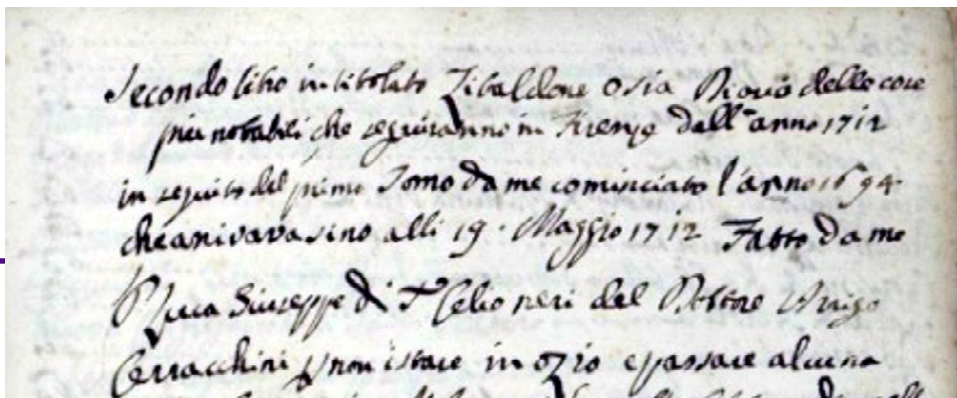 Secondo libro intitolato Zibaldone osia Diario delle cose
piu notabili che seguiranno in Firenze dall'anno 1712
in seguito del primo Tomo da me cominciato l'anno 1694
che arivava sino alli 19. Maggio 1712 Fatto da me
Luca Giuseppe di neri del Dottore Arrigo
Cerracchini p non istare in ozio e passare alcuna